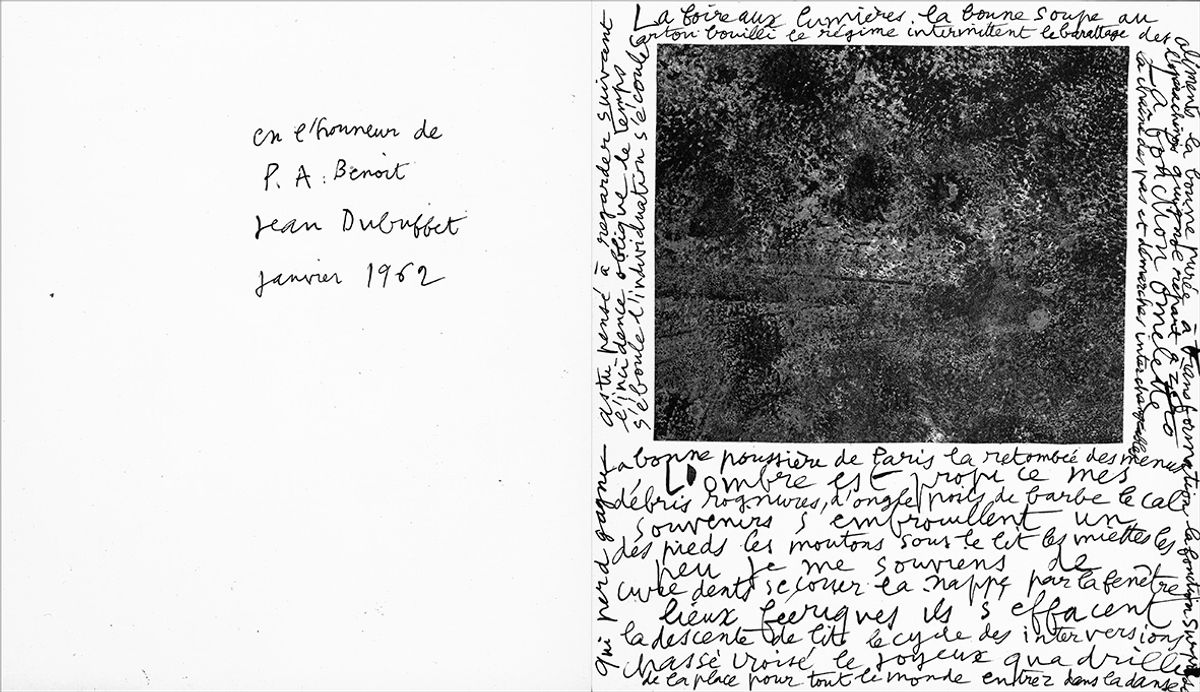 en l'honneur de
P. A. Benoit
Jean Dubuffet
Janvier 1962
La foire aux lumières. la bonne soupe au
carton bouilli le régime intermittent le barattage des
aliments la bonne purée à transformation la fonction
qui fonde repart à zéro
La fonction omelette
la chaîne des pas et démarches interchangeables
la bonne poussière de Paris la retombée des menus
L'ombre est propice mes
débris rognures, d'ongle poils de barbe le cal
souvenirs s'embrouillent un
des pieds les moutons sous le lit les miettes les
peu je me souviens de
cure dents secouer la nappe par la fenêtre
lieux féeriques ils s'effacent
la descente de lit le cycle des interversions
chassé croisé le joyeux quadrille
de la place pour tout le monde entrez dans la danse
qui perd gagne
astu pensé à regarder suivant
l'incidence oblique le temps
s'éboule l'individuation s'écoule